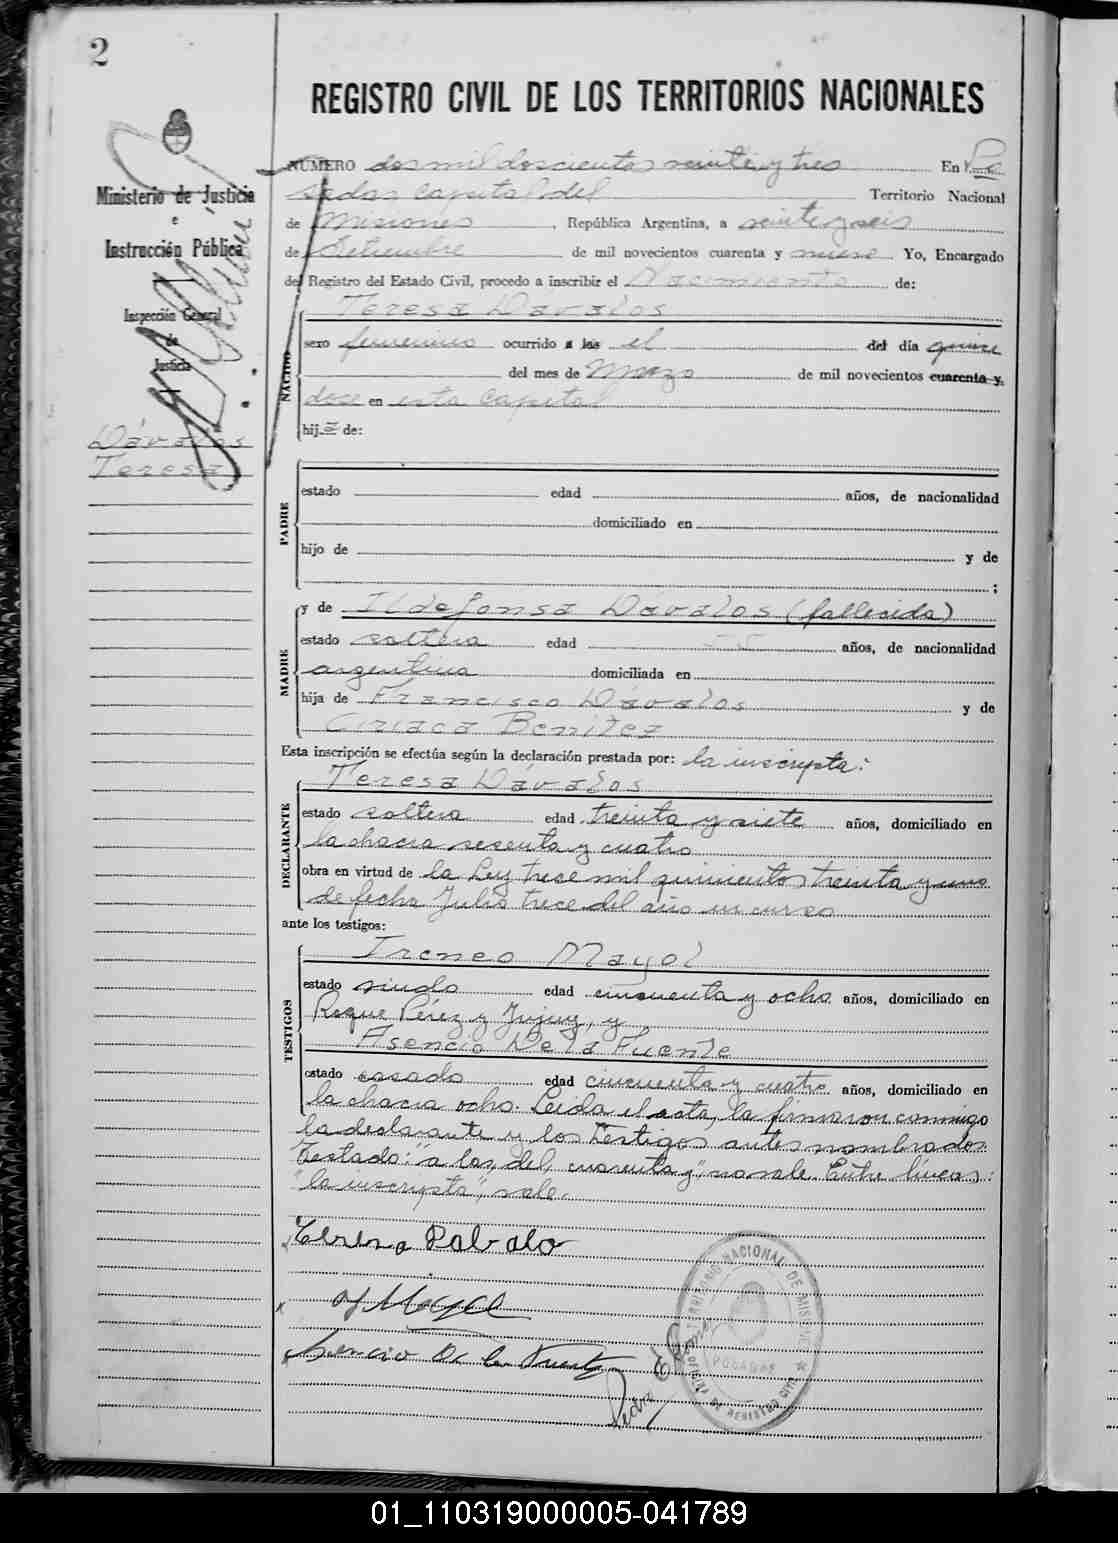 2
REGISTRO CIVIL DE LOS TERRITORIOS NACIONALES
Ministerio de Justicia
e
Instrucción Pública
Inspección General
de
Justicia
Dávalos
Teresa
NÚMERO dos mil doscientos veinte y tres En Po
sadas capital del Territorio Nacional
de Misiones, República Argentina, a veinte y seis
de Setiembre de mil novecientos cuarenta y nueve Yo, Encargado
del Registro del Estado Civil, procedo a inscribir el Nacimiento de:
NACIDO
Teresa Dávalos
sexo femenino ocurrido a las el del día quince
del mes de Marzo de mil novecientos cuarenta y
doce en esta capital
hija de:
PADRE
estado edad años, de nacionalidad
domiciliado en
hijo de y de
;
MADRE
y de Ildefonsa Dávalos (fallecida)
estado soltera edad años, de nacionalidad
argentina domiciliada en
hija de Francisco Dávalos y de
Ciriaca Benitez
Esta inscripción se efectúa según la declaración prestada por: la inscripta:
DECLARANTE
Teresa Dávalos
estado soltera edad treinta y siete años, domiciliado en
la chacra sesenta y cuatro
obra en virtud de la Ley trece mil quinientos treinta y uno
de fecha Julio trece del año en curso
ante los testigos:
TESTIGOS
Ireneo Mayol
estado viudo edad cincuenta y ocho años, domiciliado en
Roque Pérez y Jujuy, y
Asencio De la Fuente
estado casado edad cincuenta y cuatro años, domiciliado en
la chacra ocho. Leída el acta, la firmaron conmigo
la declarante y los testigos antes nombrados.
Testado: "a las, del, cuarenta y", no vale. Entre líneas:
"la inscripta", vale.
Teresa Dabalo
Mayol
Asencio De la Fuente
Pedro
TERRITORIO NACIONAL DE MISIONES
POSADAS
OFICINA DE REGISTRO CIVIL
01_110319000005-041789